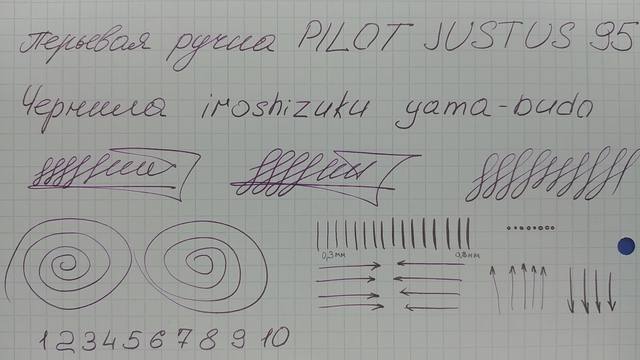 Перьевая ручка PILOT JUSTUS 95
Чернила iroshizuku yama-budo
0,3мм 0,8мм
1 2 3 4 5 6 7 8 9 10